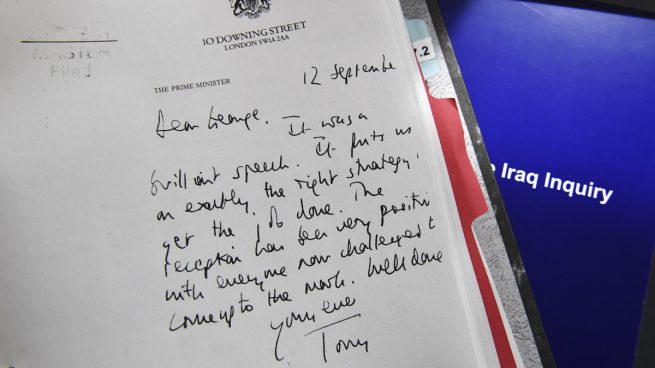 MASTER
Filed
10 DOWNING STREET
LONDON SW1A 2AA
THE PRIME MINISTER
12 September
Dear George,
It was a
brilliant speech. It puts us
on exactly the right strategy,
get the job done. The
reception has been very positive
with everyone now challenged to
come up to the mark. Well done
Yours ever
Tony
7.2
Iraq Inquiry